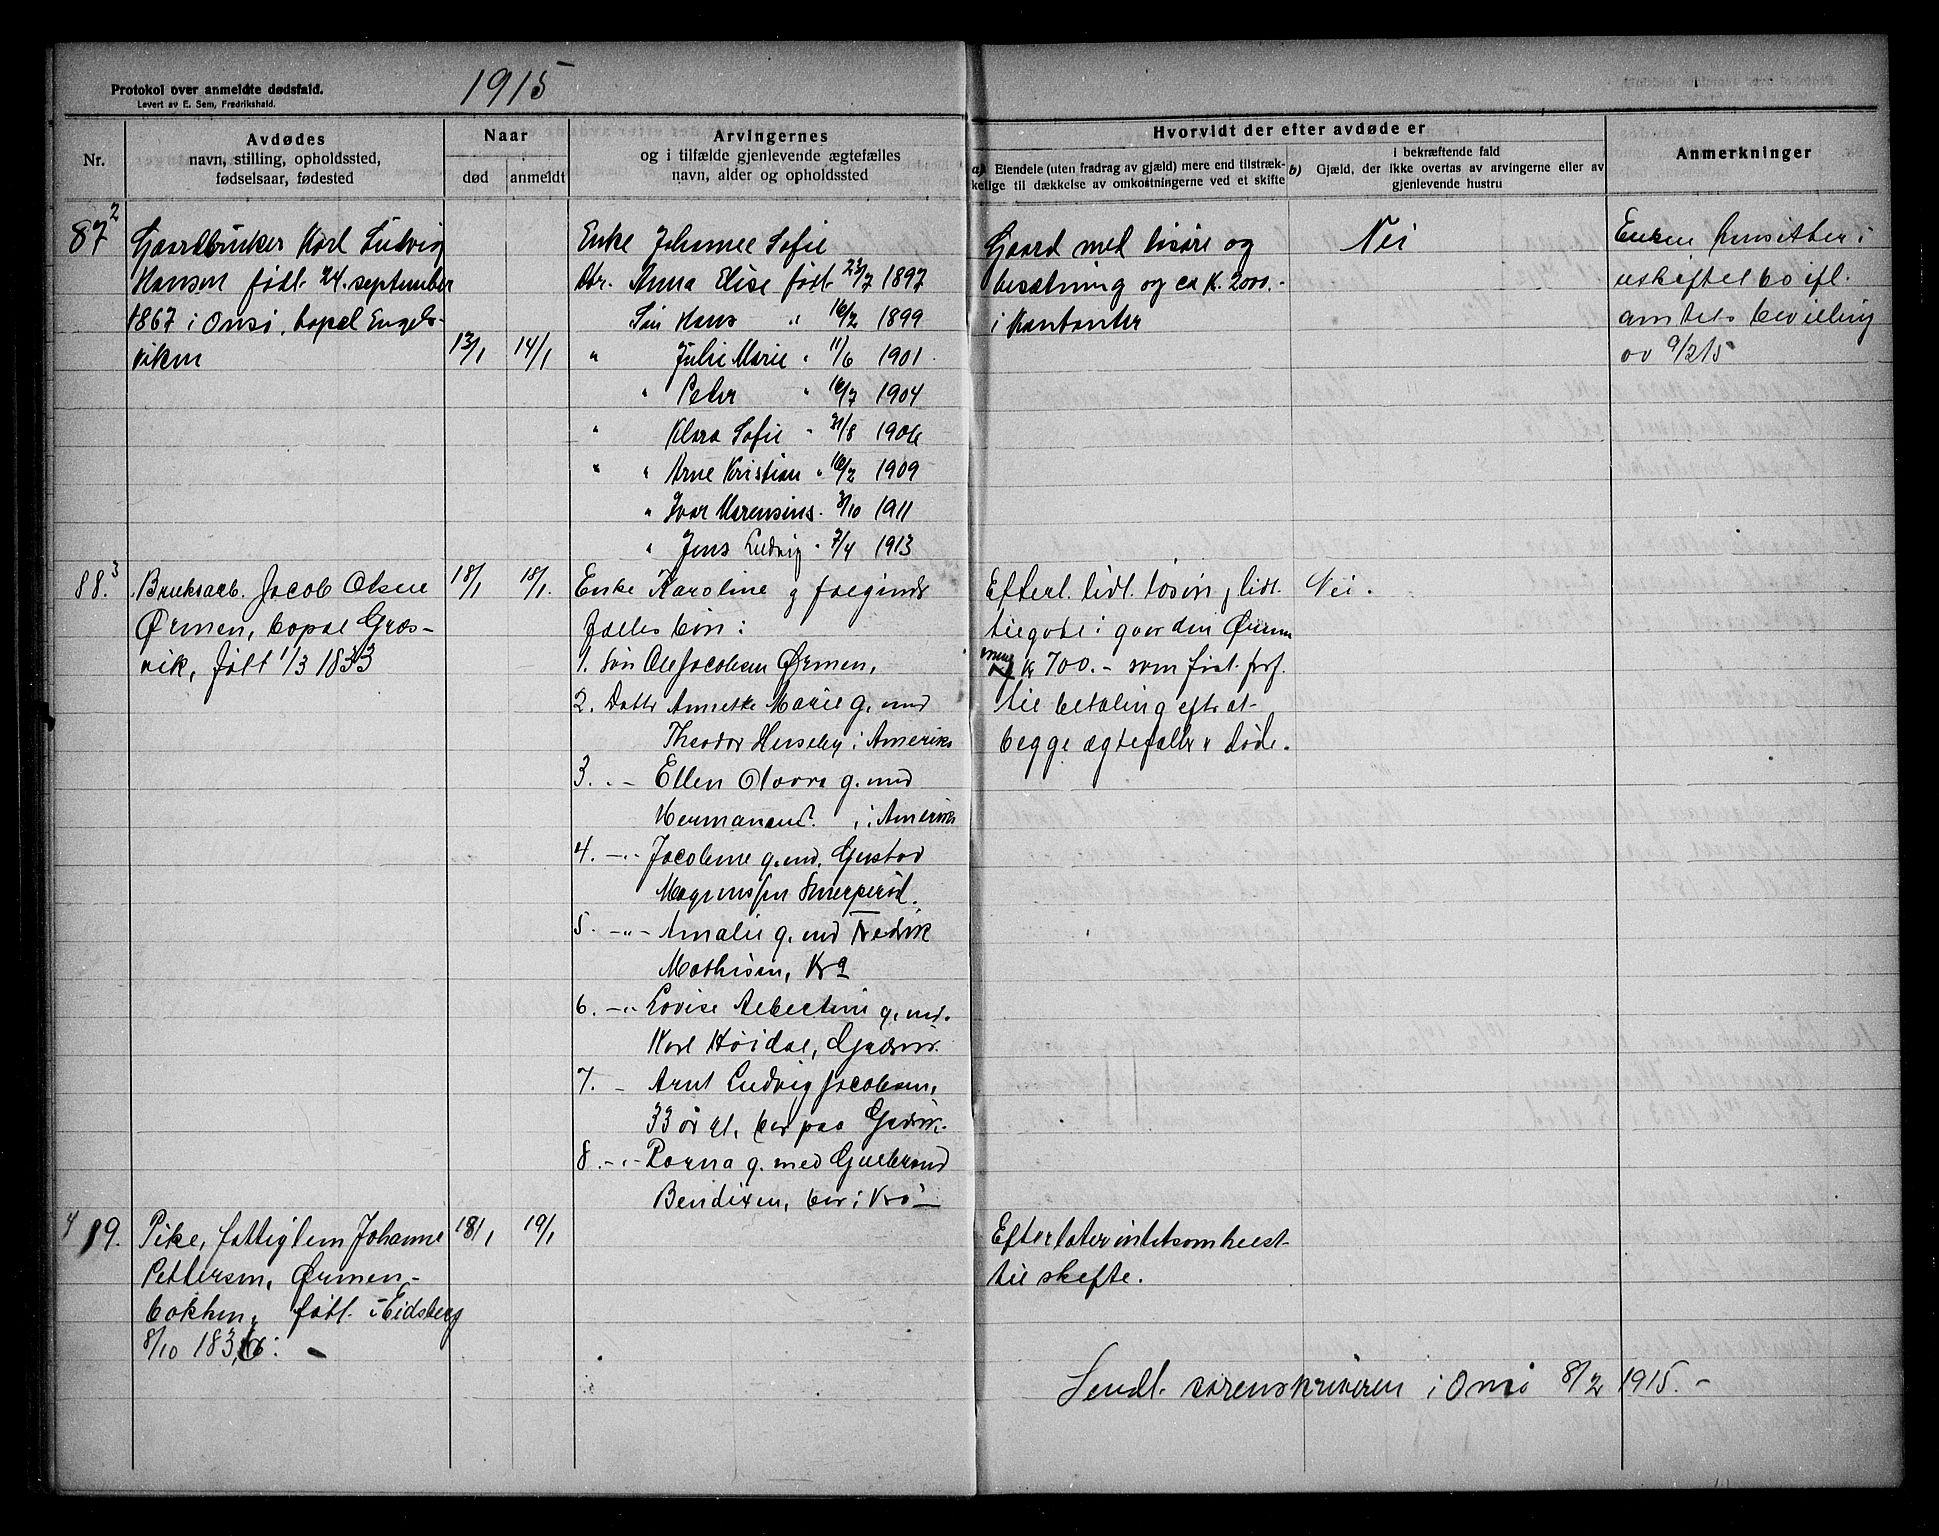 Protokol over anmeldte dødsfald.
Levert av E. Sem, Fredrikshald.
1915
Nr.
Avdødes
navn, stilling, opholdssted,
fødselsaar, fødested
Naar
død
anmeldt
Arvingernes
og i tilfælde gjenlevende ægtefælles
navn, alder og opholdssted
Hvorvidt der efter avdøde er
a) Eiendele (uten fradrag av gjæld) mere end tilstræk-
kelige til dækkelse av omkostningerne ved et skifte
b) Gjæld, der i bekræftende fald
ikke overtas av arvingerne eller av
gjenlevende hustru
Anmerkninger
87 2
Gaardbruker Karl Ludvig
Hansen født 24. september
1867 i Onsø, bopæl Engels-
viken
13/1
14/1
Enke Johanne Sofie
Dtr. Anna Elise født 23/7 1897
Søn Hans " 16/2 1899
" Julie Marie " 11/6 1901
" Peter " 16/7 1904
" Klara Sofie " 31/8 1906
" " Arne Kristian " 16/2 1909
" Ivar Marensius " 3/10 1911
" Jens Ludvig " 7/4 1913
Gaard med løsøre og
besætning og ca K. 2000.-
i Kontanter
Nei
Enken hensitter i
uskiftet bo ifl.
amtets bevilling
av 9/2 15
88. 3
Bruksarb. Jacob Olsen
Ørmen, bopæl Græs-
vik, født 1/3 1833
18/1
18/1.
Enke Karoline og følgende
fælles børn:
1. Søn Ole Jacobsen Ørmen,
2. Datter Annette Marie g. med
Theodor Huseby i Amerika
3. -"- Ellen Olava g. med
Hermansen i Amerika
4. -"- Jacobine g. med. Gustav
Magnussen Smerperød.
5. -"- Amalie g. med Fredrik
Mathisen, Kra
6. -"- Lovise Albertine g. med.
Karl Høidal, Græsvik.
7. - Arnt Ludvig Jacobsen,
33 år gl. bor paa Græsvik.
8. -"- Ragna g. med Gulbrand
Bendixen, bor i Kra
Efterl. lidt løsøre, lidt
tilgode i gaarden Ørmen
K 700.- som først forf.
til betaling efter at
begge ægtefæller er døde.
Nei.
4 89.
Pike, fattiglem Johanne
Pettersen, Ørmen-
bakken, født i Eidsberg
8/10 1836:
18/1
19/1
Efterlater intetsomhelst
til skifte.
Sendt sorenskriveren i Onsø 8/2 1915.-